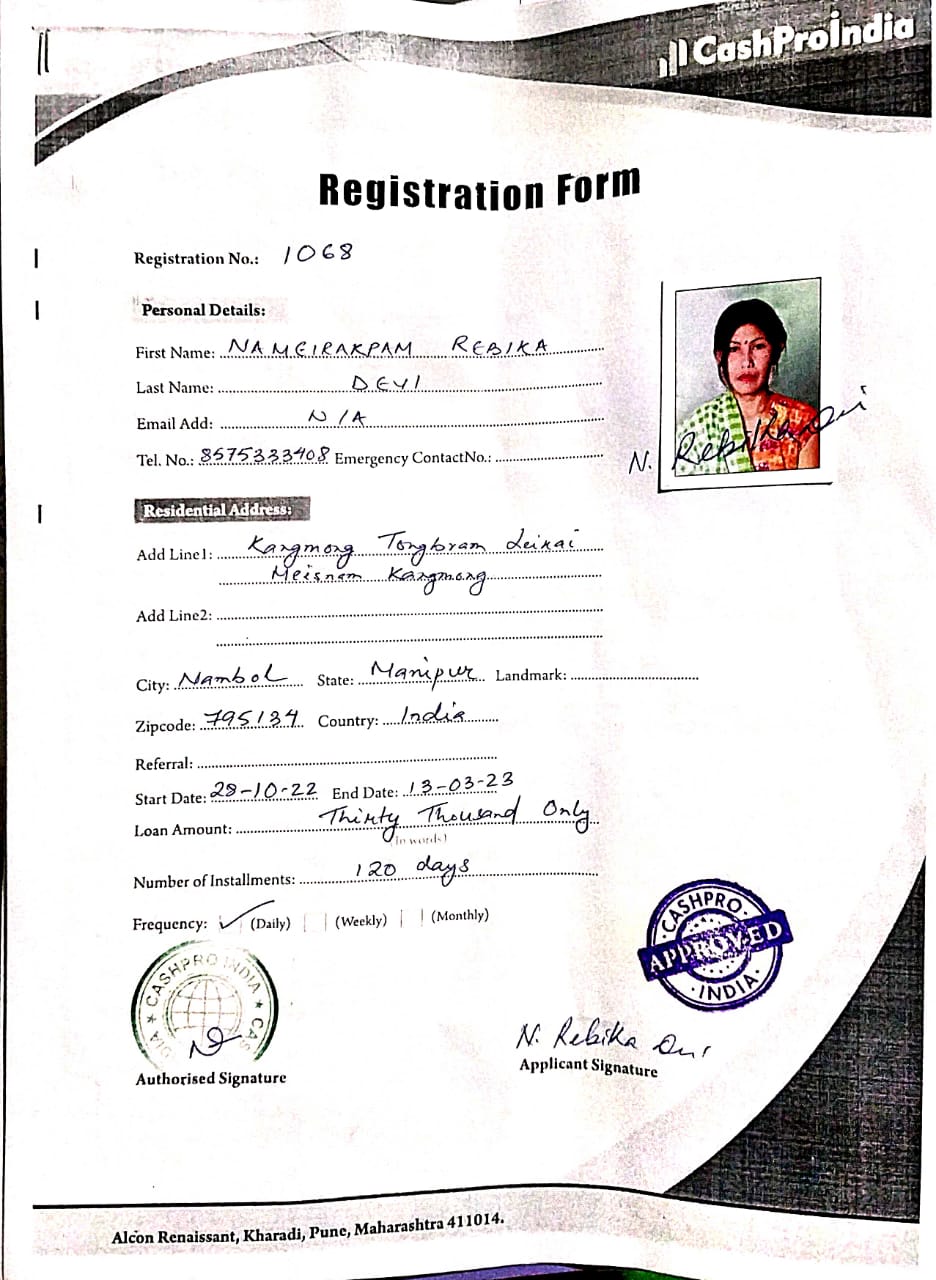 CashProIndia
Registration Form
Registration No.: 1068
Personal Details:
First Name: NAMEIRAKPAM REBIKA
Last Name: DEVI
Email Add: N/A
Tel. No.: 8575333408 Emergency ContactNo.:
N. Rebika Devi
Residential Address:
Add Line1: Kangmong Tongbram Leikai
Meisnam Kangmong
Add Line2:
City: Nambol State: Manipur Landmark:
Zipcode: 795134 Country: India
Referral:
Start Date: 29-10-22 End Date: 13-03-23
Loan Amount: Thirty Thousand Only
(In words)
Number of Installments: 120 days
Frequency: ✓ (Daily) | | (Weekly) | | (Monthly)
CASHPRO INDIA
CASHPRO
APPROVED
INDIA
N. Rebika Devi
Authorised Signature
Applicant Signature
Alcon Renaissant, Kharadi, Pune, Maharashtra 411014.